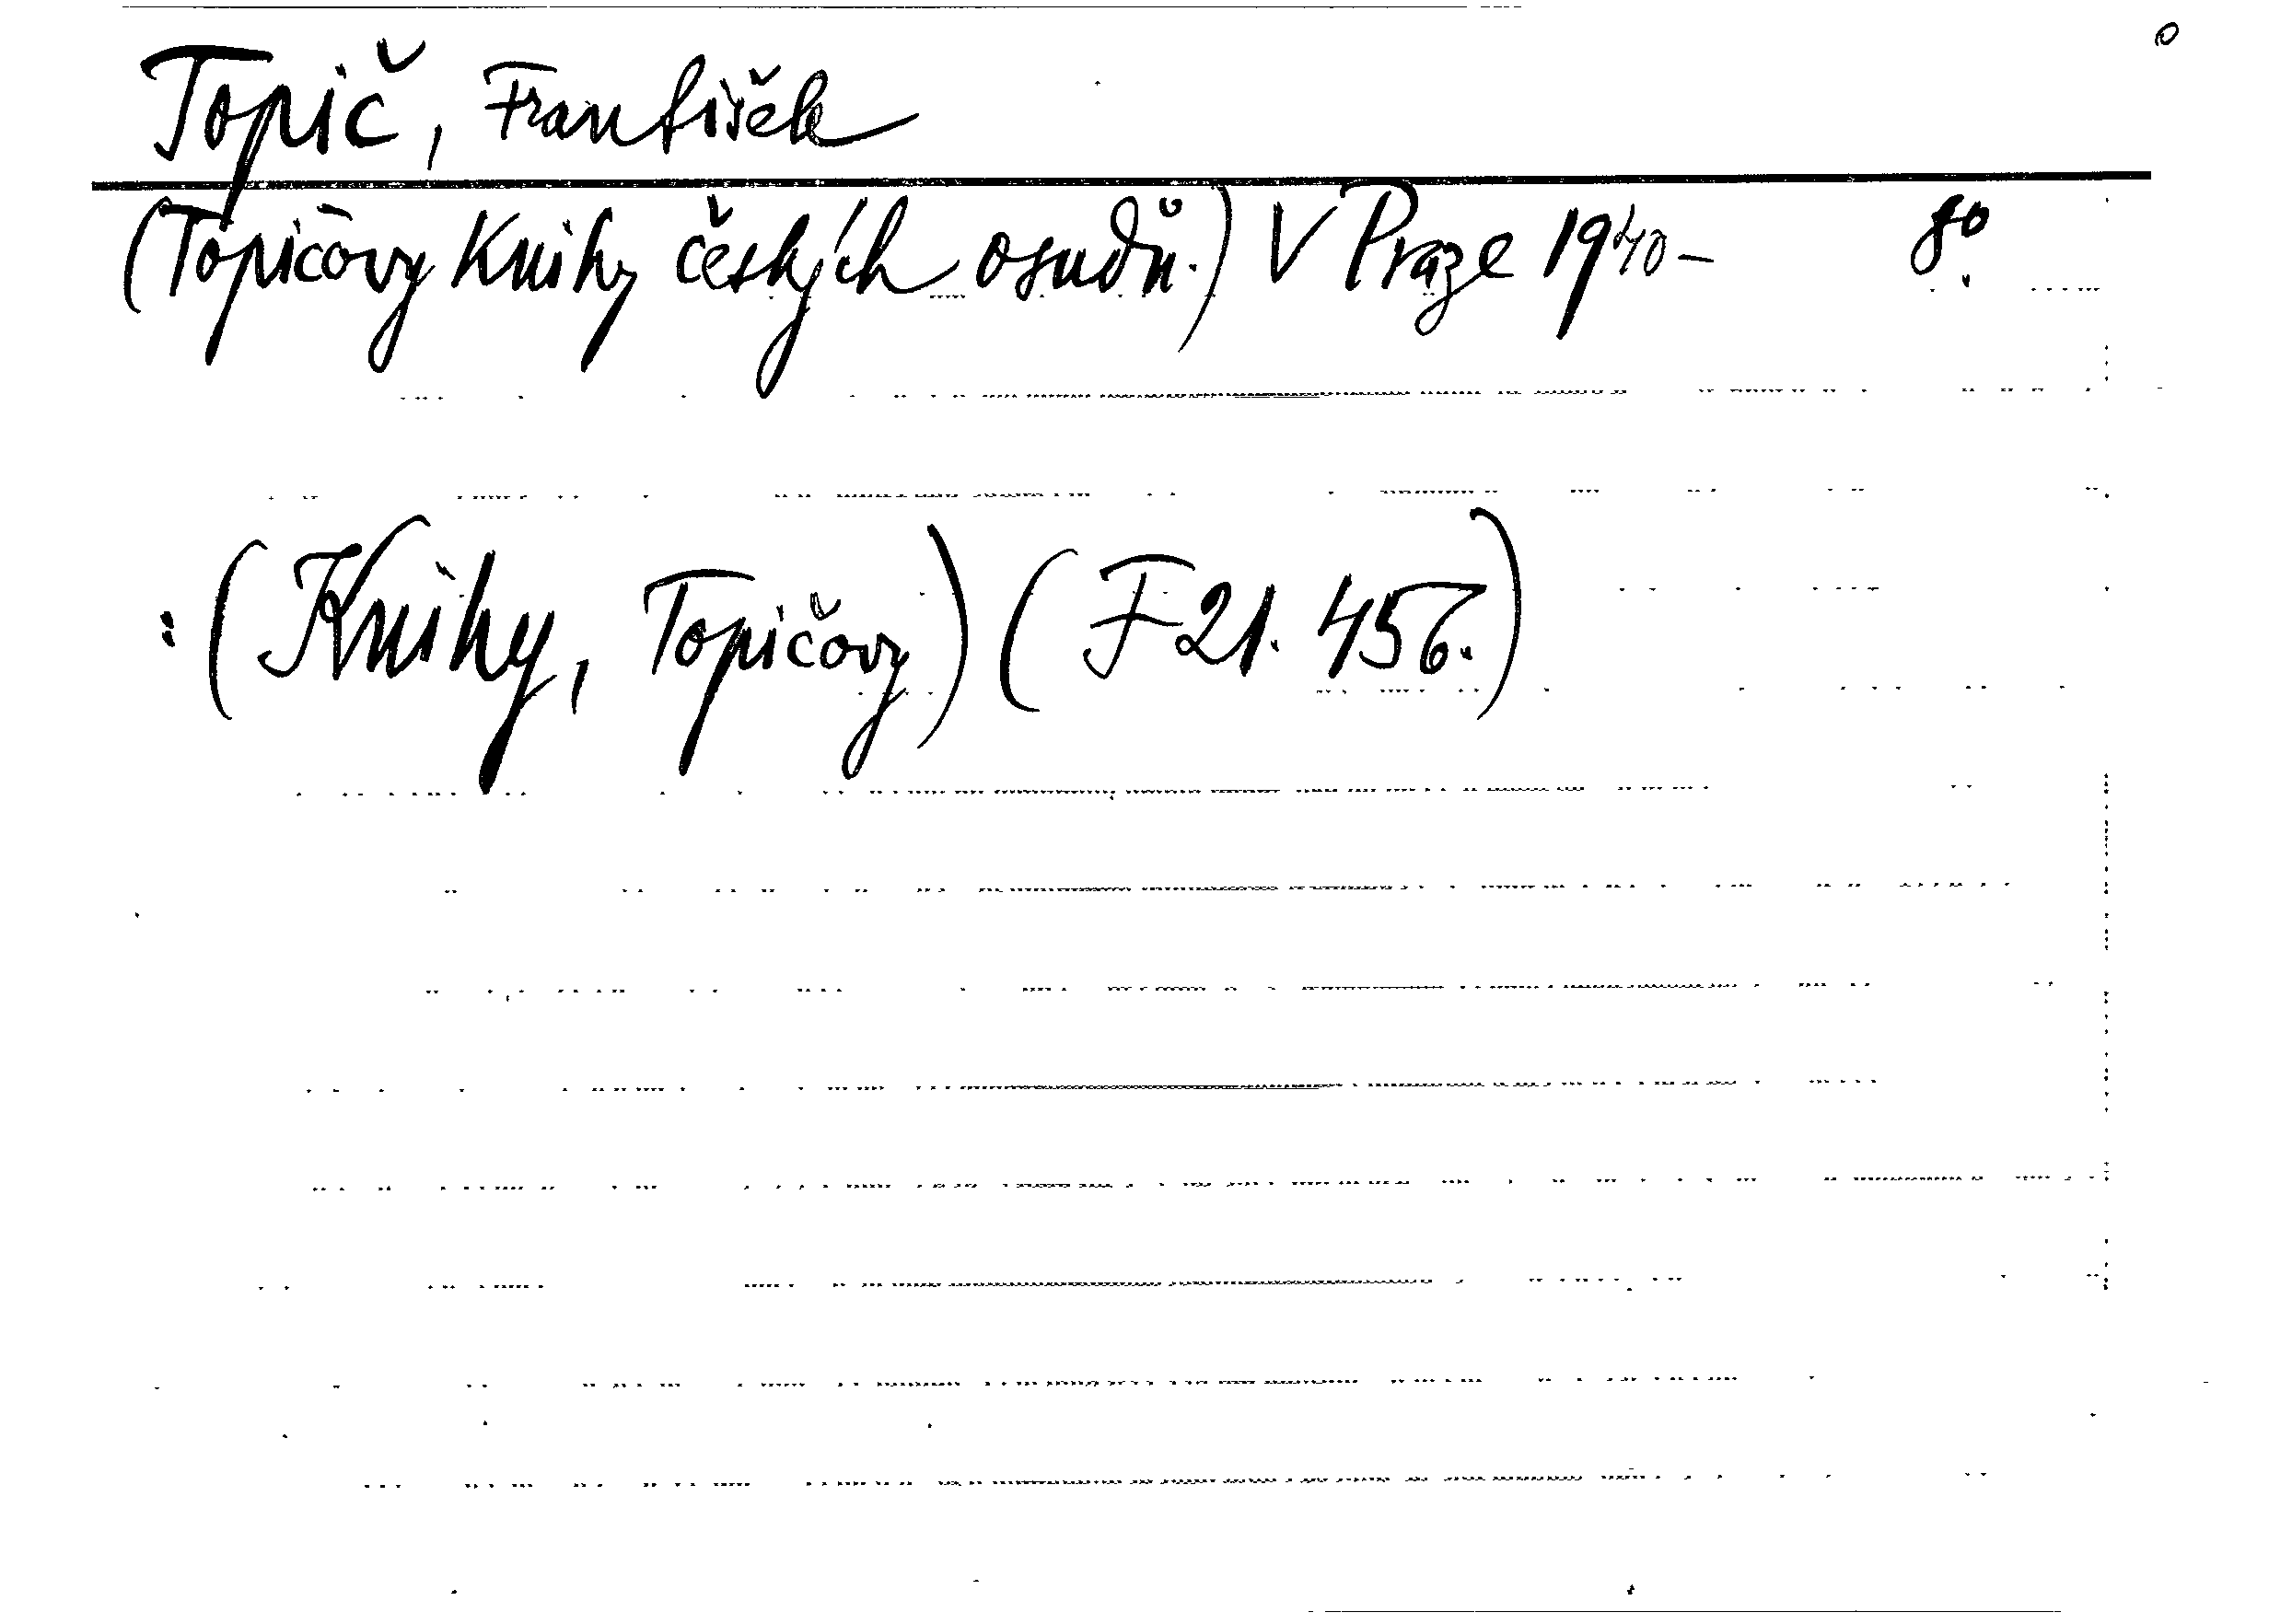 Topič, František
(Topičovy Knihy českých osudů.) V Praze 1940- 8º.
: (Knihy, Topičovy) (F 21. 456.)